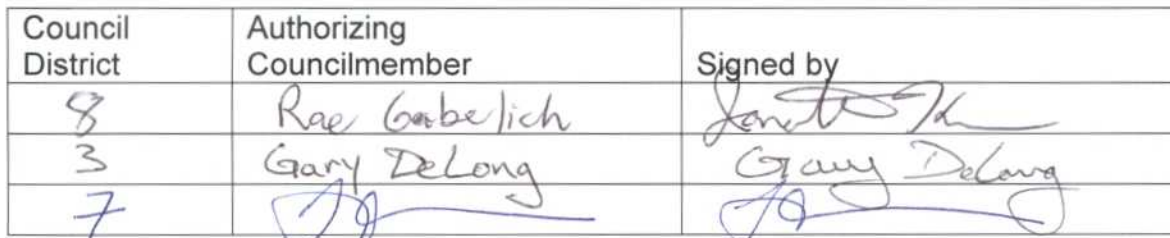 Council District Authorizing Councilmember Signed by
8 Rae Gabelich
3 Gary DeLong Gary DeLong
7